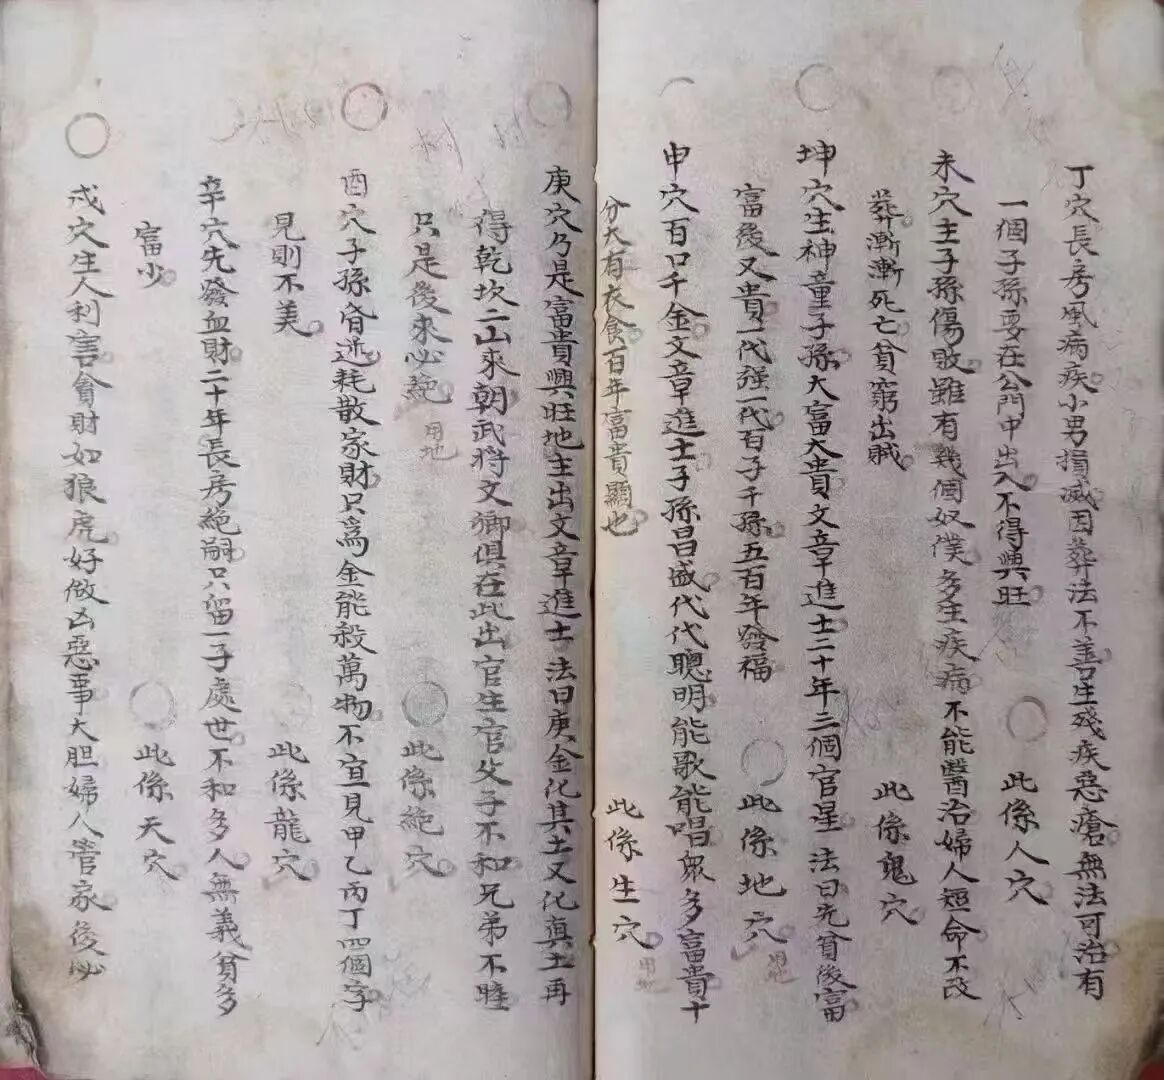 丁穴長房風病疾小男損滅因葬法不善生殘疾惡瘡無法可治有
一個子孫要在公門中出入不得興旺
此係人穴
未穴主子孫傷敗雖有幾個奴僕多生疾病不能醫治婦人短命不改
葬漸漸死亡貧窮出賊
此係鬼穴
坤穴生神童子孫大富大貴文章進士二十年三個官星法曰先貧後富
富後又貴一代強一代百子千孫五百年 福
此係地穴
用地
申穴百口千金文章進士子孫昌盛代代聰明能歌能唱眾多富貴十
分大有衣食百年富貴顯也
此係生穴
用地
庚穴乃是富貴興旺地主出文章進士法曰庚金化其土又化真土再
得乾坎二山來朝武將文卿俱在此出官生官父子不和兄弟不睦
只是後來必絕
用地
此係絕穴
酉穴子孫 逃耗散家財只為金能殺萬物不宜見甲乙丙丁四個字
見則不美
此係龍穴
辛穴先發血財二十年長房絕嗣只留一子處世不和多人無義貧多
富少
此係天穴
戌穴生人利害貪財如狼虎好做凶惡事大胆婦人當家後必